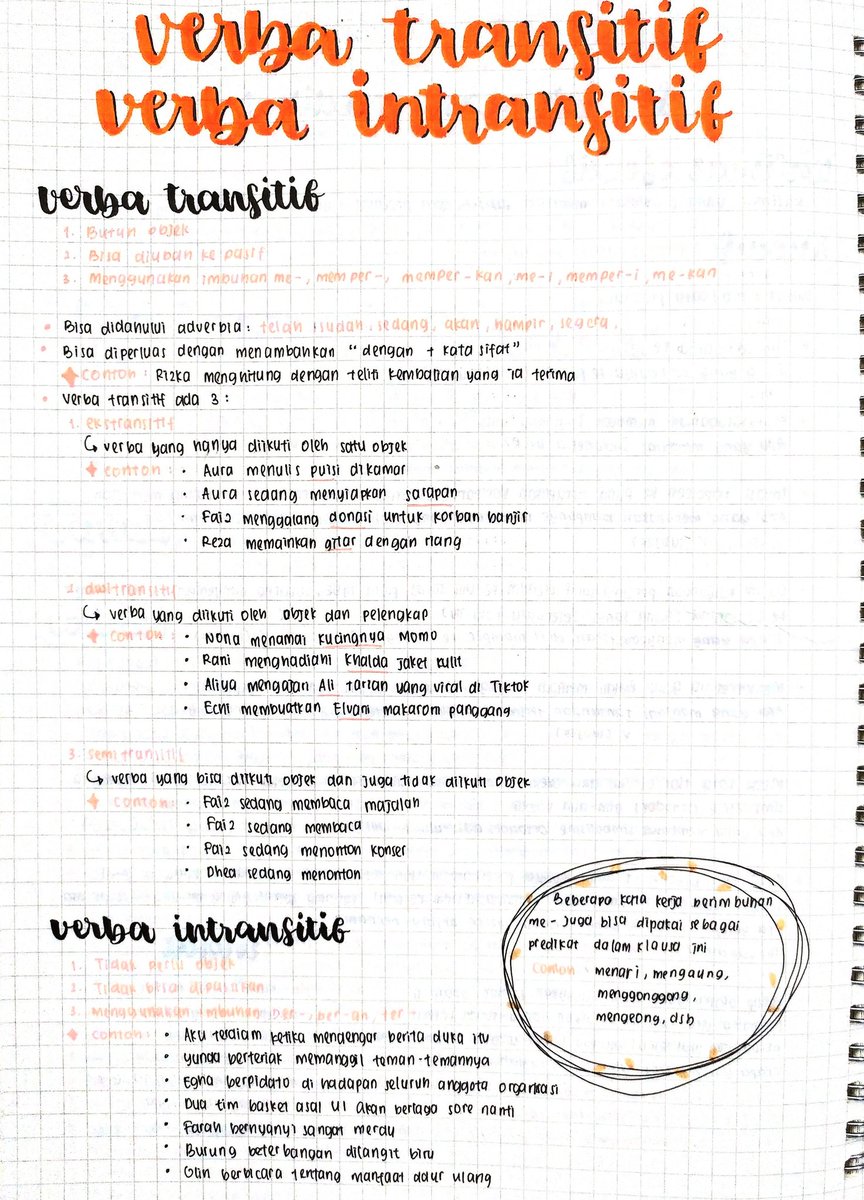 verba transitif
verba intransitif
verba transitif
1. Butuh objek
2. Bisa diubah ke pasif
3. Menggunakan imbuhan me-, memper-, memper-kan, me-i, memper-i, me-kan
• Bisa didahului adverbia: telah, sudah, sedang, akan, hampir, segera.
• Bisa diperluas dengan menambahkan "dengan + kata sifat"
contoh: Rizka menghitung dengan teliti kembalian yang ia terima
• verba transitif ada 3:
1. ekstransitif
↳ verba yang hanya diikuti oleh satu objek
contoh: • Aura menulis puisi dikamar
• Aura sedang menyiapkan sarapan
• Faiz menggalang donasi untuk korban banjir
• Reza memainkan gitar dengan riang
2. dwitransitif
↳ verba yang diikuti oleh objek dan pelengkap
contoh: • Nona menamai kucingnya Momo
• Rani menghadiahi Khalda jaket kulit
• Aliya mengajari Ali tarian yang viral di Tiktok
• Echi membuatkan Elvani makaroni panggang
3. semitransitif
↳ verba yang bisa diikuti objek dan juga tidak diikuti objek
contoh: • Faiz sedang membaca majalah
• Faiz sedang membaca
• Faiz sedang menonton konser
• Dhea sedang menonton
verba intransitif
1. Tidak perlu objek
2. Tidak bisa dipasifkan
3. Menggunakan imbuhan ber-, ber-an, ter-
contoh: • Aku terdiam ketika mendengar berita duka itu
• Yunda berteriak memanggil teman-temannya
• Egha berpidato di hadapan seluruh anggota organisasi
• Dua tim basket asal UI akan berlaga sore nanti
• Farah bernyanyi sangat merdu
• Burung beterbangan dilangit biru
• Olin berbicara tentang manfaat daur ulang
Beberapa kata kerja berimbuhan
me- juga bisa dipakai sebagai
predikat dalam klausa ini
contoh: menari, mengaung,
menggonggong,
mengeong, dsb